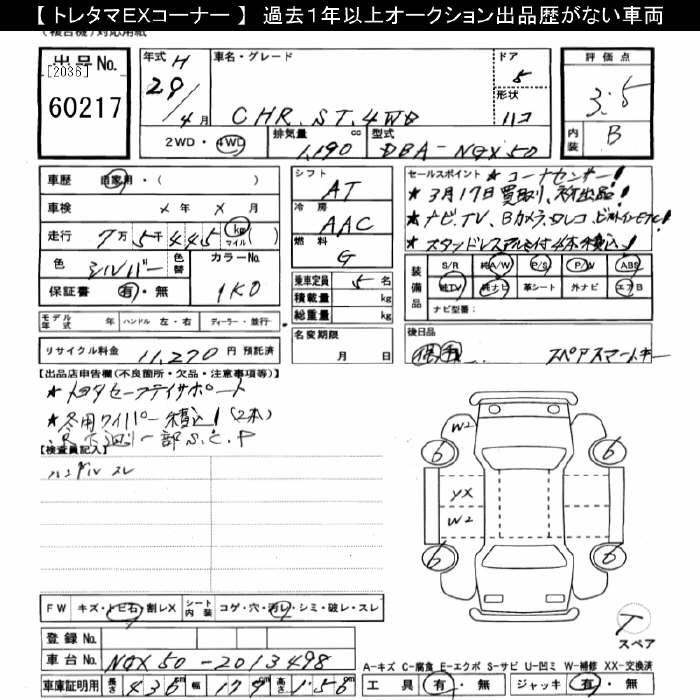 【トレタマEXコーナー】 過去1年以上オークション出品歴がない車両
出品No.
[2036]
60217
年式 H
29/4月
車名・グレード
CHR. ST. 4WD
ドア
5
形状
ハコ
評価点
3.5
内装
B
2WD・4WD
排気量 cc
1,190
型式
DBA-NGX50
車歴 自家用・( )
車検 × 年 × 月
走行 7万5千445 km マイル ( )
色 シルバー
色替
カラーNo.
1K0
保証書 有・無
シフト
AT
冷房
AAC
燃料
G
乗車定員 5名
積載量 kg
総重量 kg
名変期限
月 日
セールスポイント ★コーナーセンサー!
★3月17日買取り、初出品!
★ナビ、TV、Bカメラ、
★スタッドレスアルミ付4本積込!
装備品
S/R 純A/W P/S P/W ABS
純TV 純ナビ 革シート 外ナビ エアB
ナビ型番:
モデル年式 年 ハンドル 左・右 ディーラー・並行
リサイクル料金 11,270 円 預託済
後日品
スペアスマートキー
【出品店申告欄(不良箇所・欠品・注意事項等)】
★トヨタセーフティサポート
★冬用ワイパー積込!(2本)
一部S.C.P
【検査員記入】
ハンドル スレ
W2
6
6
YX
W2
6
6
FW キズ・トビ石・割レX
シート内装 コゲ・穴・汚レ・シミ・破レ・スレ
T
スペア
登録No.
車台No. NGX50-2013498
A-キズ C-腐食 E-エクボ S-サビ U-凹ミ W-補修 XX-交換済
車庫証明用 長さ 436 幅 179 高さ 156
工具 有・無 ジャッキ 有・無